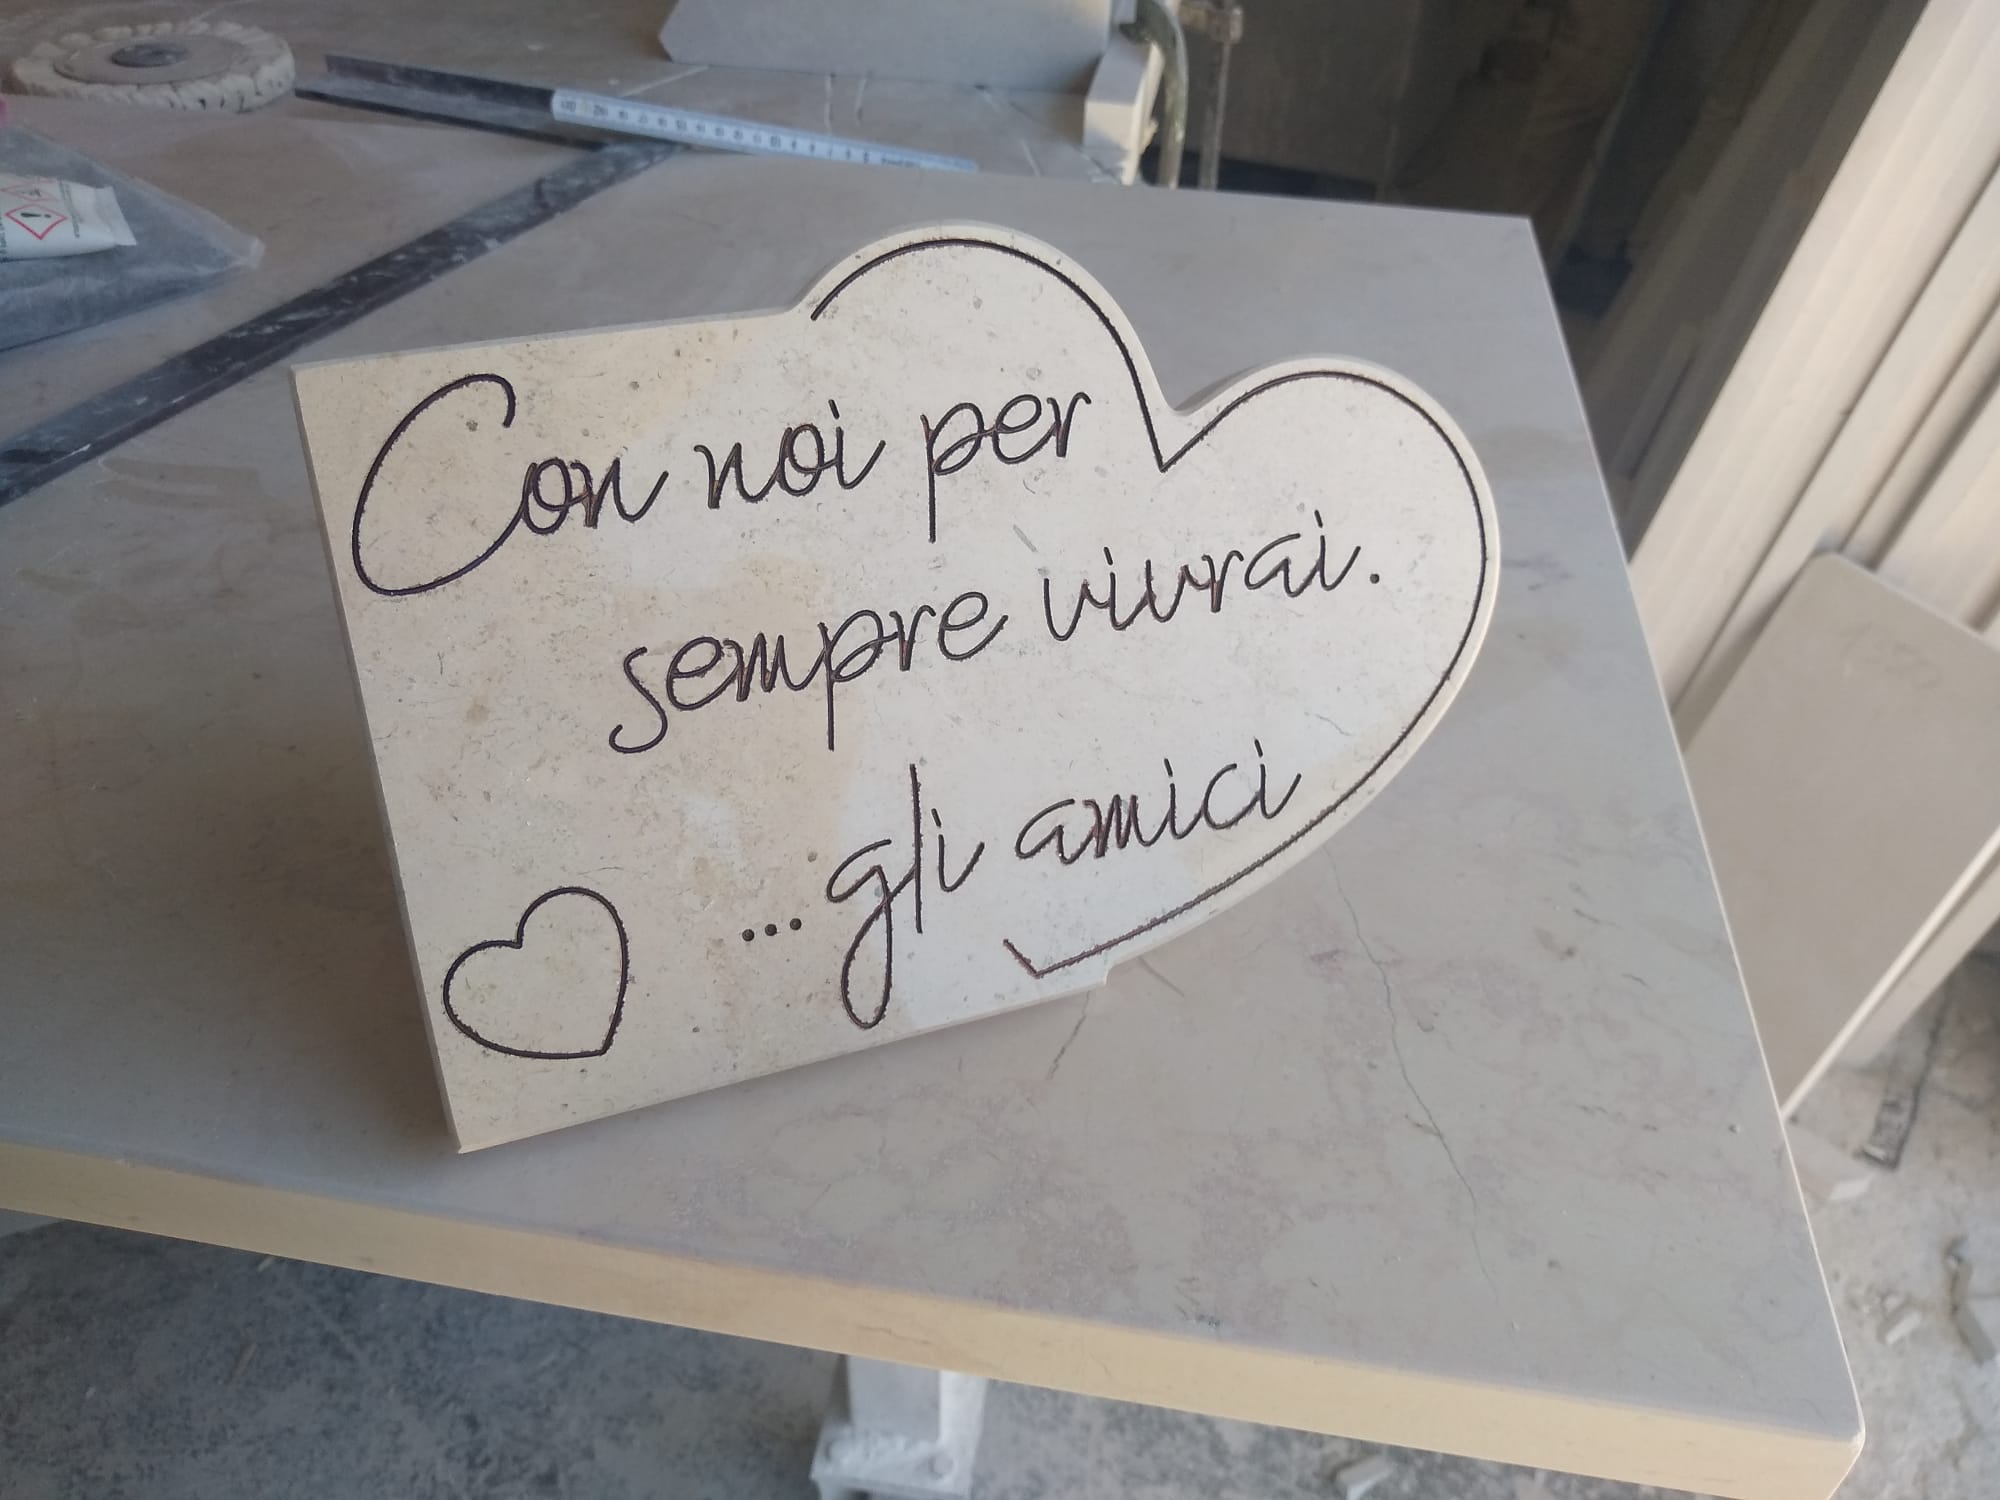 Con noi per
sempre vivrai.
...gli amici